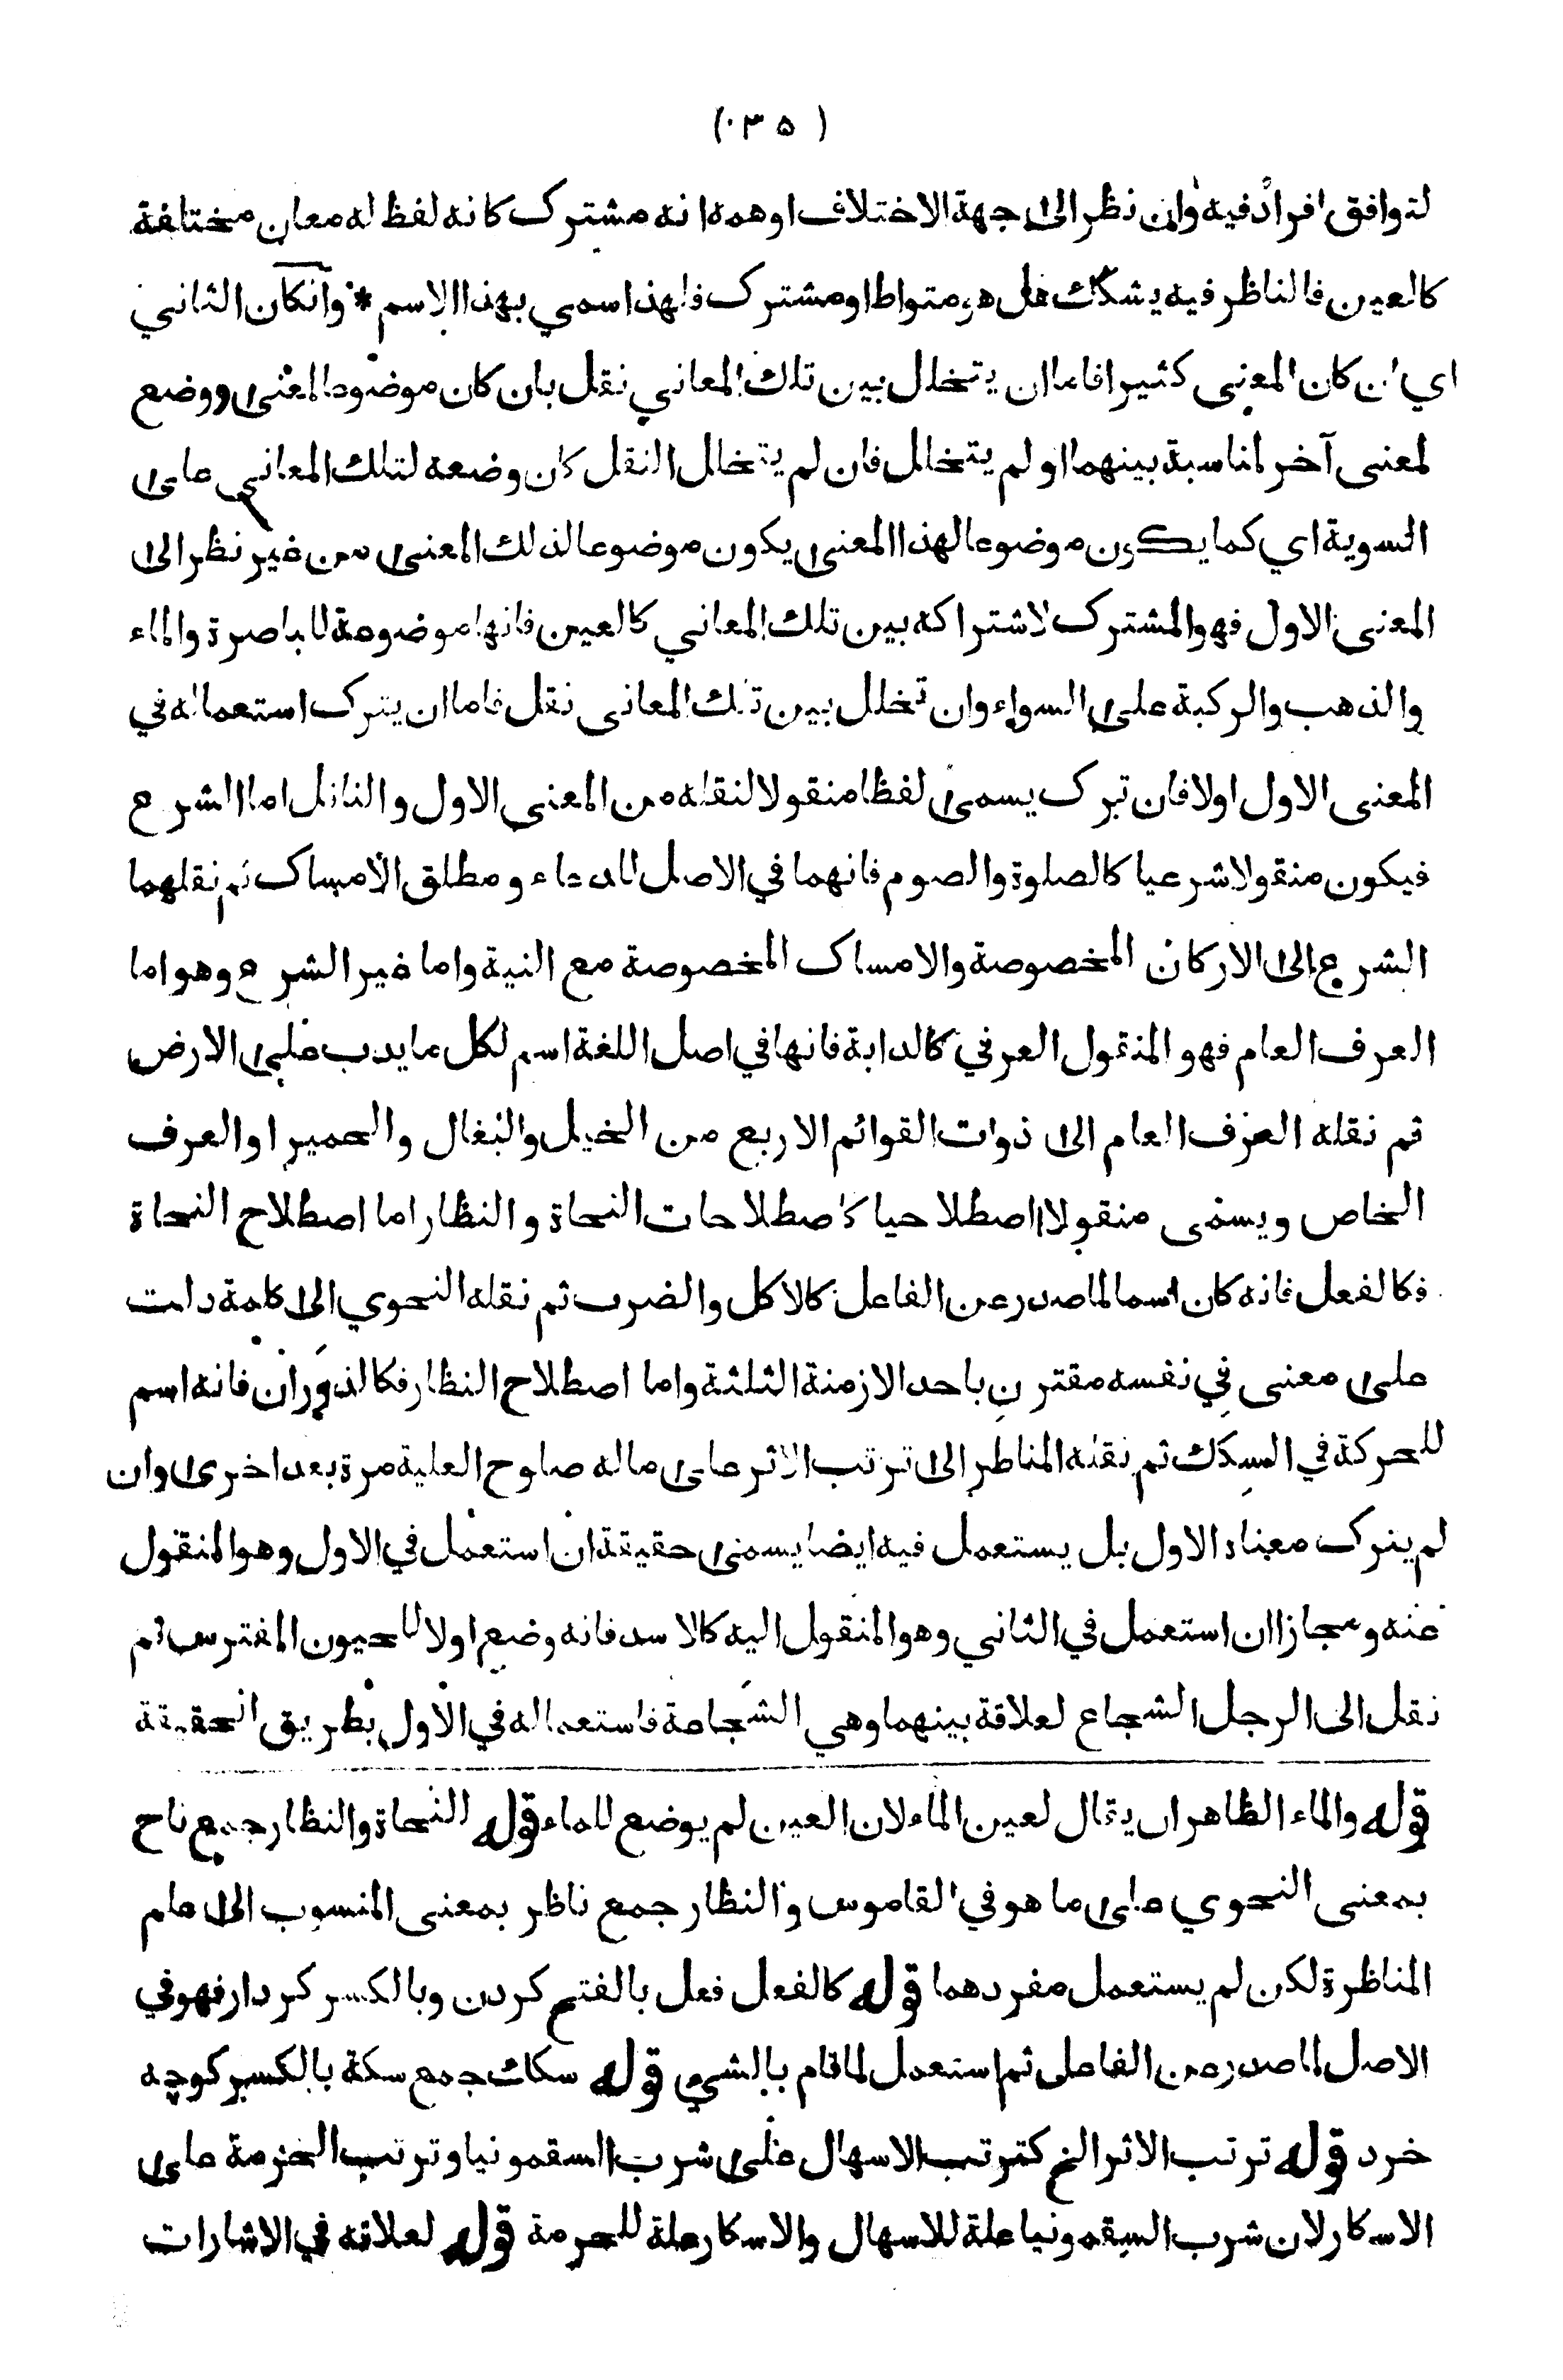 (٠٣٥)
لتوافق افراده فيه وان نظر الى جهة الاختلاف اوهمه انه مشترك كانه لفظ له معان مختلفة
كالعين فالناظر فيه يشكك هل هو متواط او مشترك فلهذا سمي بهذا الاسم * وانكان الثاني
اي ان كان المعنى كثيرا فاما ان يتخلل بين تلك المعاني نقل بان كان موضوعا لمعنى ووضع
لمعنى آخر لمناسبة بينهما او لم يتخلل فان لم يتخلل النقل كان وضعه لتلك المعاني على
السوية اي كما يكون موضوعا لهذا المعنى يكون موضوعا لذلك المعنى من غير نظر الى
المعنى الاول فهو المشترك لاشتراكه بين تلك المعاني كالعين فانها موضوعة للباصرة والماء
والذهب والركبة على السواء وان تخلل بين تلك المعانى نقل فاما ان يترك استعماله في
المعنى الاول اولا فان ترك يسمى لفظا منقولا لنقله من المعنى الاول والناقل اما الشرع
فيكون منقولا شرعيا كالصلوة والصوم فانهما في الاصل للدعاء ومطلق الامساك ثم نقلهما
الشرع الى الاركان المخصوصة والامساك المخصوصة مع النية واما غير الشرع وهو اما
العرف العام فهو المنقول العرفي كالدابة فانها في اصل اللغة اسم لكل ما يدب على الارض
ثم نقله العرف العام الى ذوات القوائم الاربع من الخيل والبغال والحمير او العرف
الخاص ويسمى منقولا اصطلاحيا كاصطلاحات النحاة والنظار اما اصطلاح النحاة
فكالفعل فانه كان اسما لما صدر عن الفاعل كالاكل والضرب ثم نقله النحوي الى كلمة دلت
على معنى في نفسه مقترن باحد الازمنة الثلثة واما اصطلاح النظار فكالدوران فانه اسم
للحركة في السكك ثم نقله المناظر الى ترتب الاثر على ماله صلوح العلية مرة بعد اخرى وان
لم يترك معناه الاول بل يستعمل فيه ايضا يسمى حقيقة ان استعمل في الاول وهو المنقول
عنه ومجازا ان استعمل في الثاني وهو المنقول اليه كالاسد فانه وضع اولا للحيون المفترس ثم
نقل الى الرجل الشجاع لعلاقة بينهما وهي الشجاعة فاستعماله في الاول بطريق الحقيقة
قوله والماء الظاهر ان يقال لعين الماء لان العين لم يوضع للماء قوله النحاة والنظار جمع ناح
بمعنى النحوي على ما هو في القاموس والنظار جمع ناظر بمعنى المنسوب الى علم
المناظرة لكن لم يستعمل مفردهما قوله كالفعل فعل بالفتح كردن وبالكسر كردار فهو في
الاصل لما صدر من الفاعل ثم استعمل لما قام بالشيء قوله سكك جمع سكة بالكسر كوچه
خرد قوله ترتب الاثر الخ كترتب الاسهال على شرب السقمونيا وترتب الحرمة على
الاسكار لان شرب السقمونيا علة للاسهال والاسكار علة للحرمة قوله لعلاقه في الاشارات